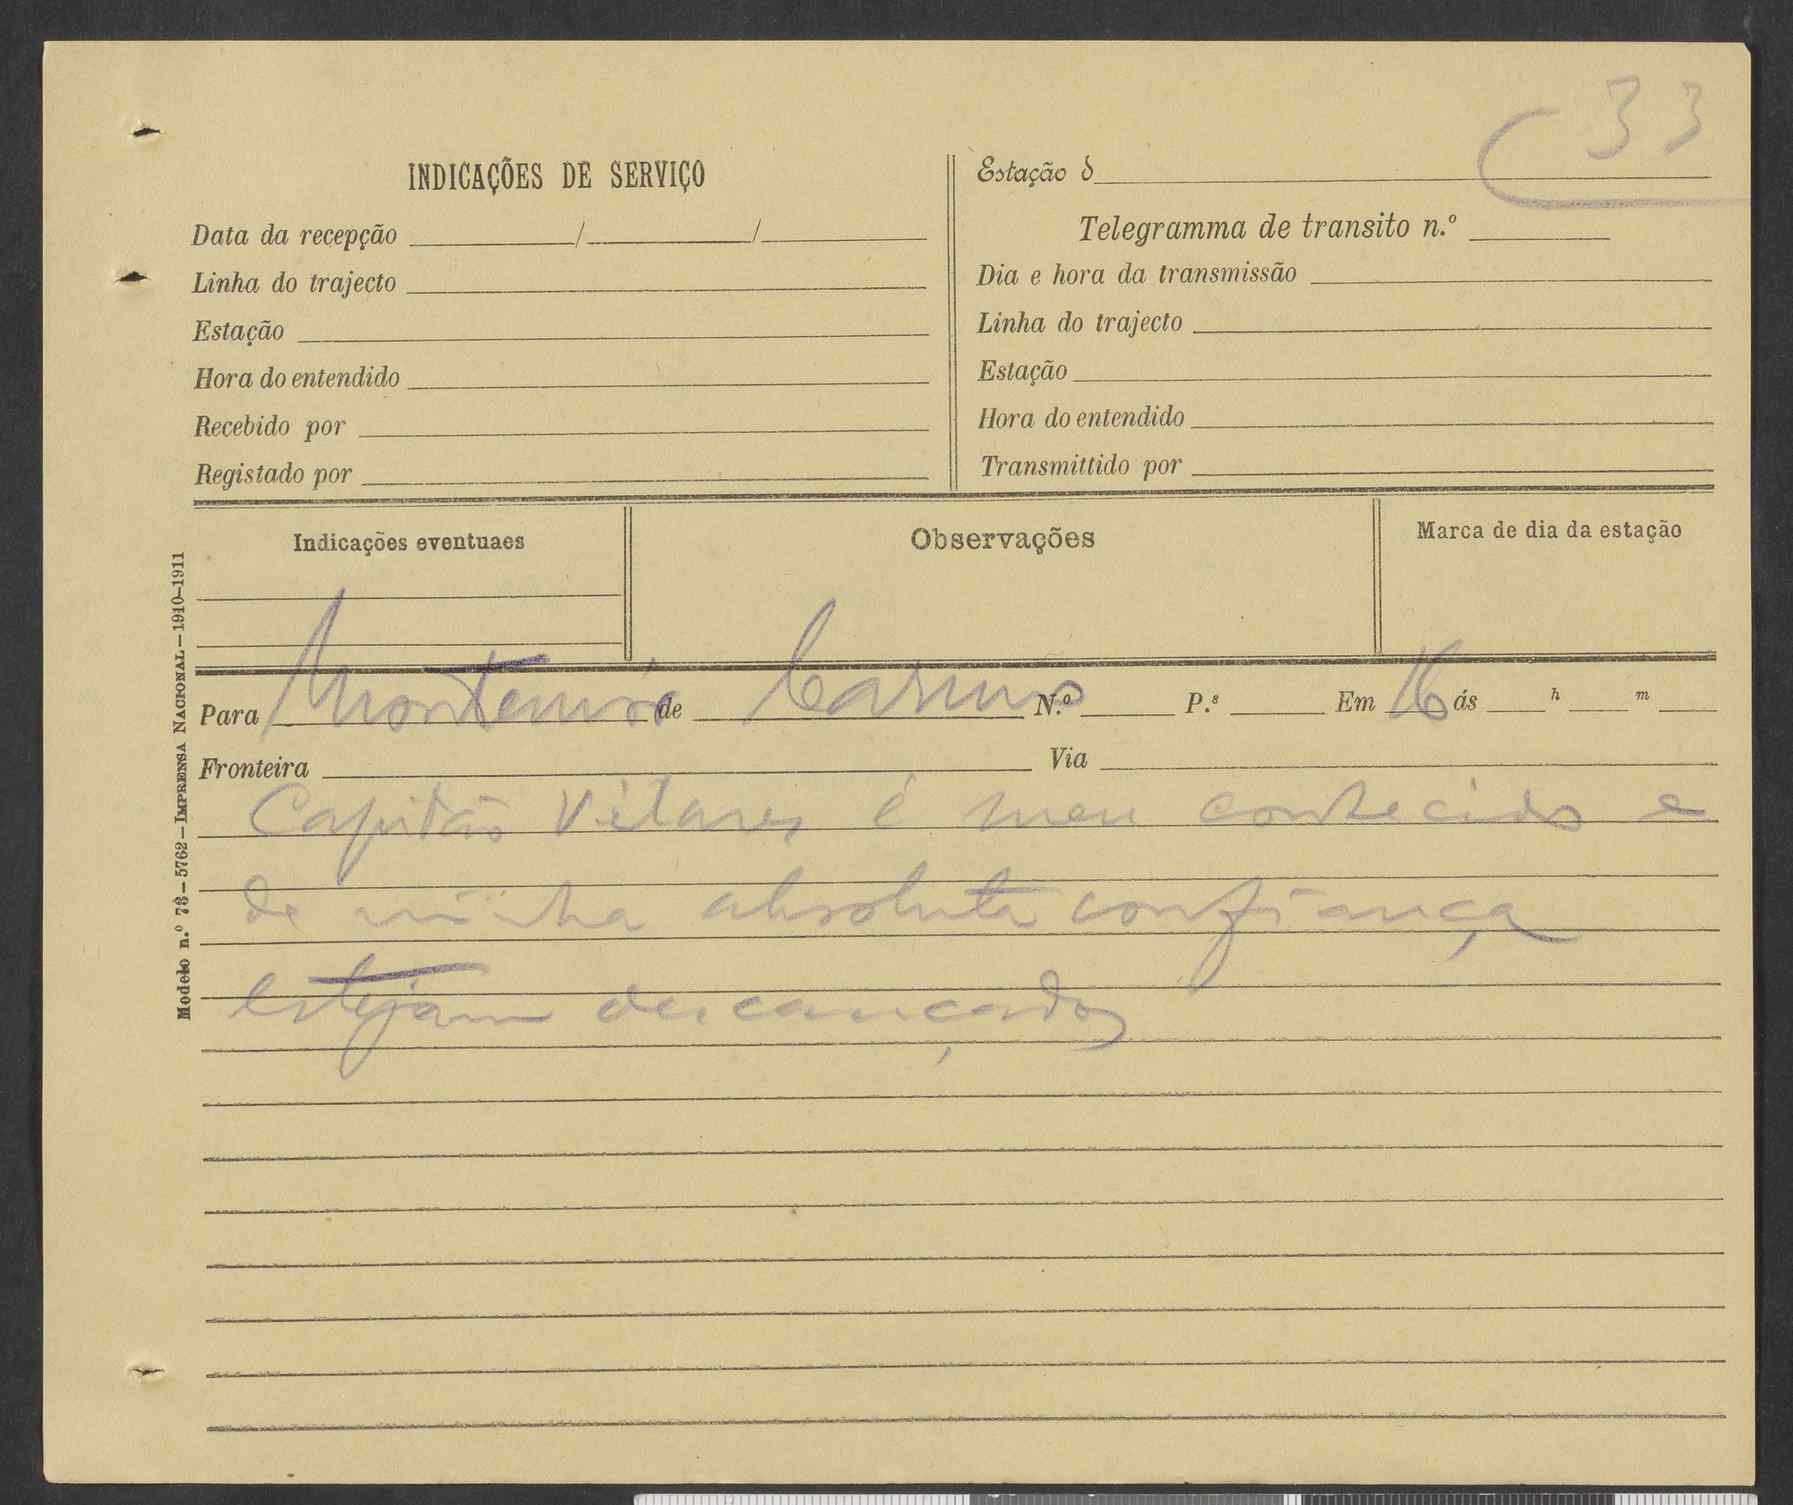 33
INDICAÇÕES DE SERVIÇO
Data da recepção / /
Linha do trajecto
Estação
Hora do entendido
Recebido por
Registado por
Estação d
Telegramma de transito n.º
Dia e hora da transmissão
Linha do trajecto
Estação
Hora do entendido
Transmittido por
Indicações eventuaes
Observações
Marca de dia da estação
Para de N.º P.s Em 16 ás h m
Fronteira Via
Capitão é meu conhecido e
de minha absoluta confiança
estejam descançados
Modelo n.º 73—5762—IMPRENSA NACIONAL—1910-1911